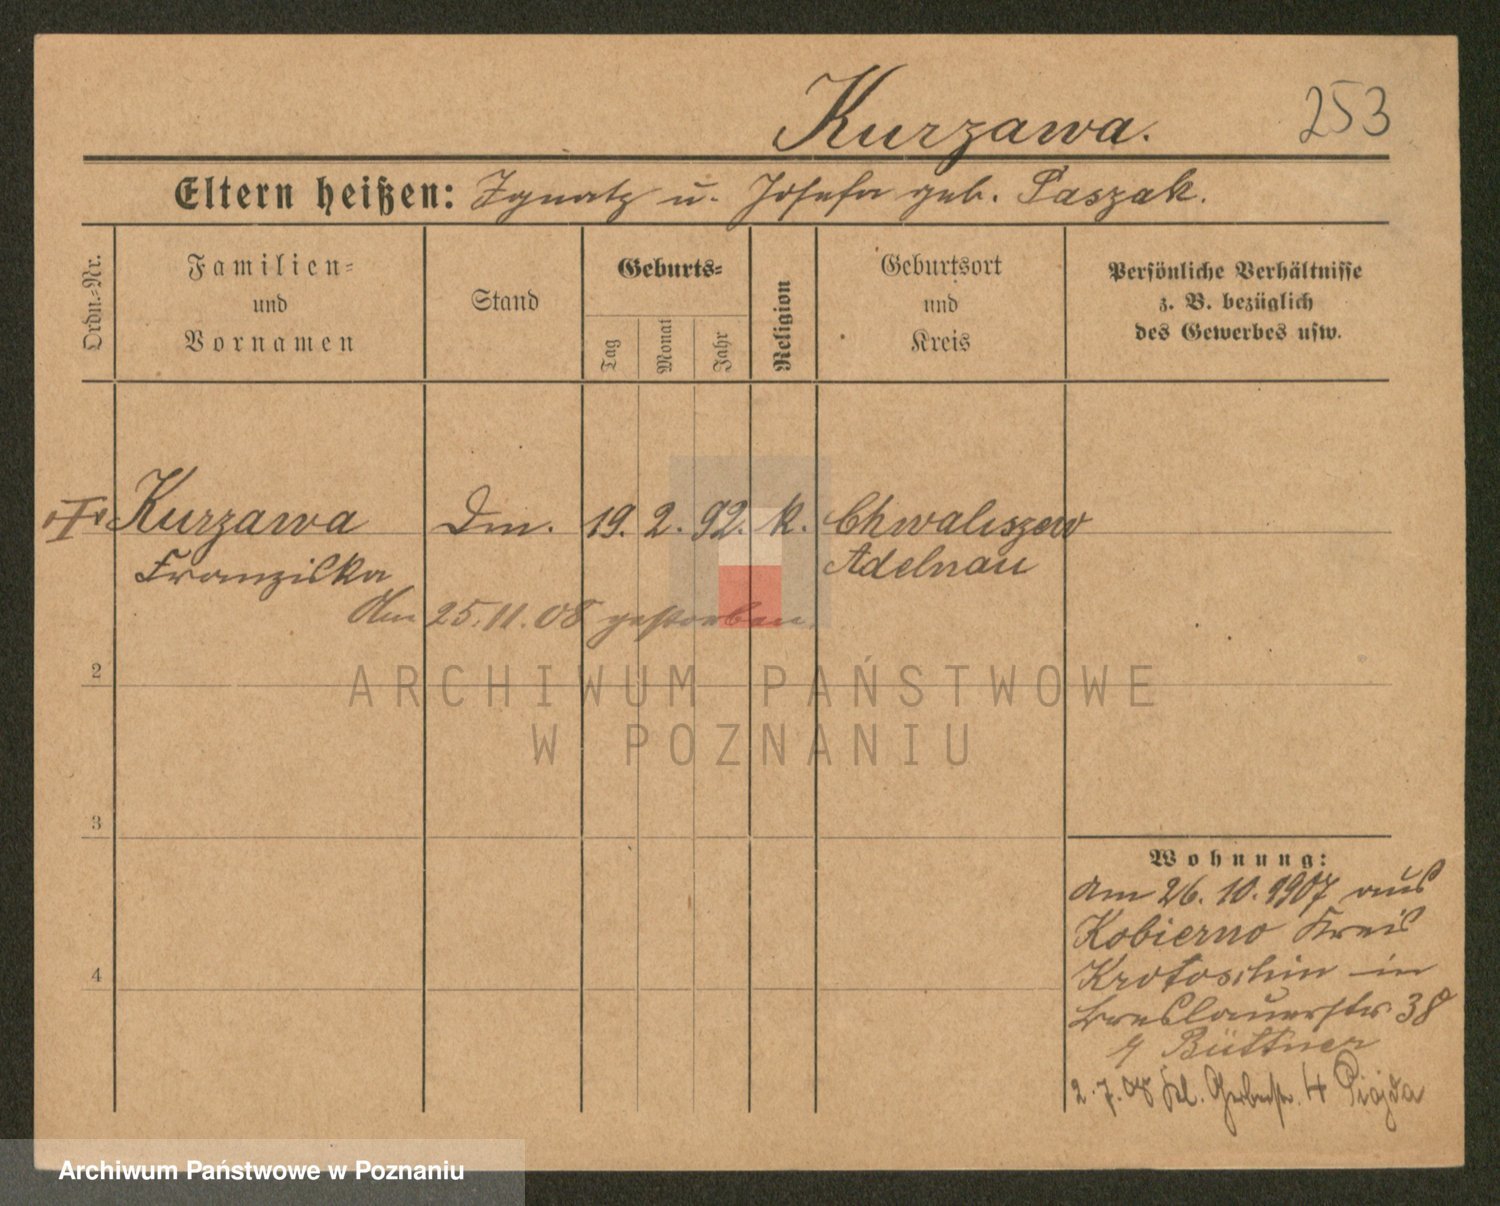 Kurzawa.
253
Eltern heißen: Ignatz u. Josefa geb. Paszak.
Ordn.-Nr.
Familien-
und
Vornamen
Stand
Geburts-
Tag
Monat
Jahr
Religion
Geburtsort
und
Kreis
Persönliche Verhältnisse
z. B. bezüglich
des Gewerbes usw.
Kurzawa Dm. 19. 2. 92. k. Chwaliszew
Franziska Adelnau
Am 25.11.08 gestorben.
2
ARCHIWUM PAŃSTWOWE
W POZNANIU
3
Wohnung:
am 26. 10. 1907 aus
Kobierno Kreis
Krotoschin in
Breslauerstr. 38
Büttner
4
2. 7. 08 Kl. Gerberstr. 4 Piojda
Archiwum Państwowe w Poznaniu